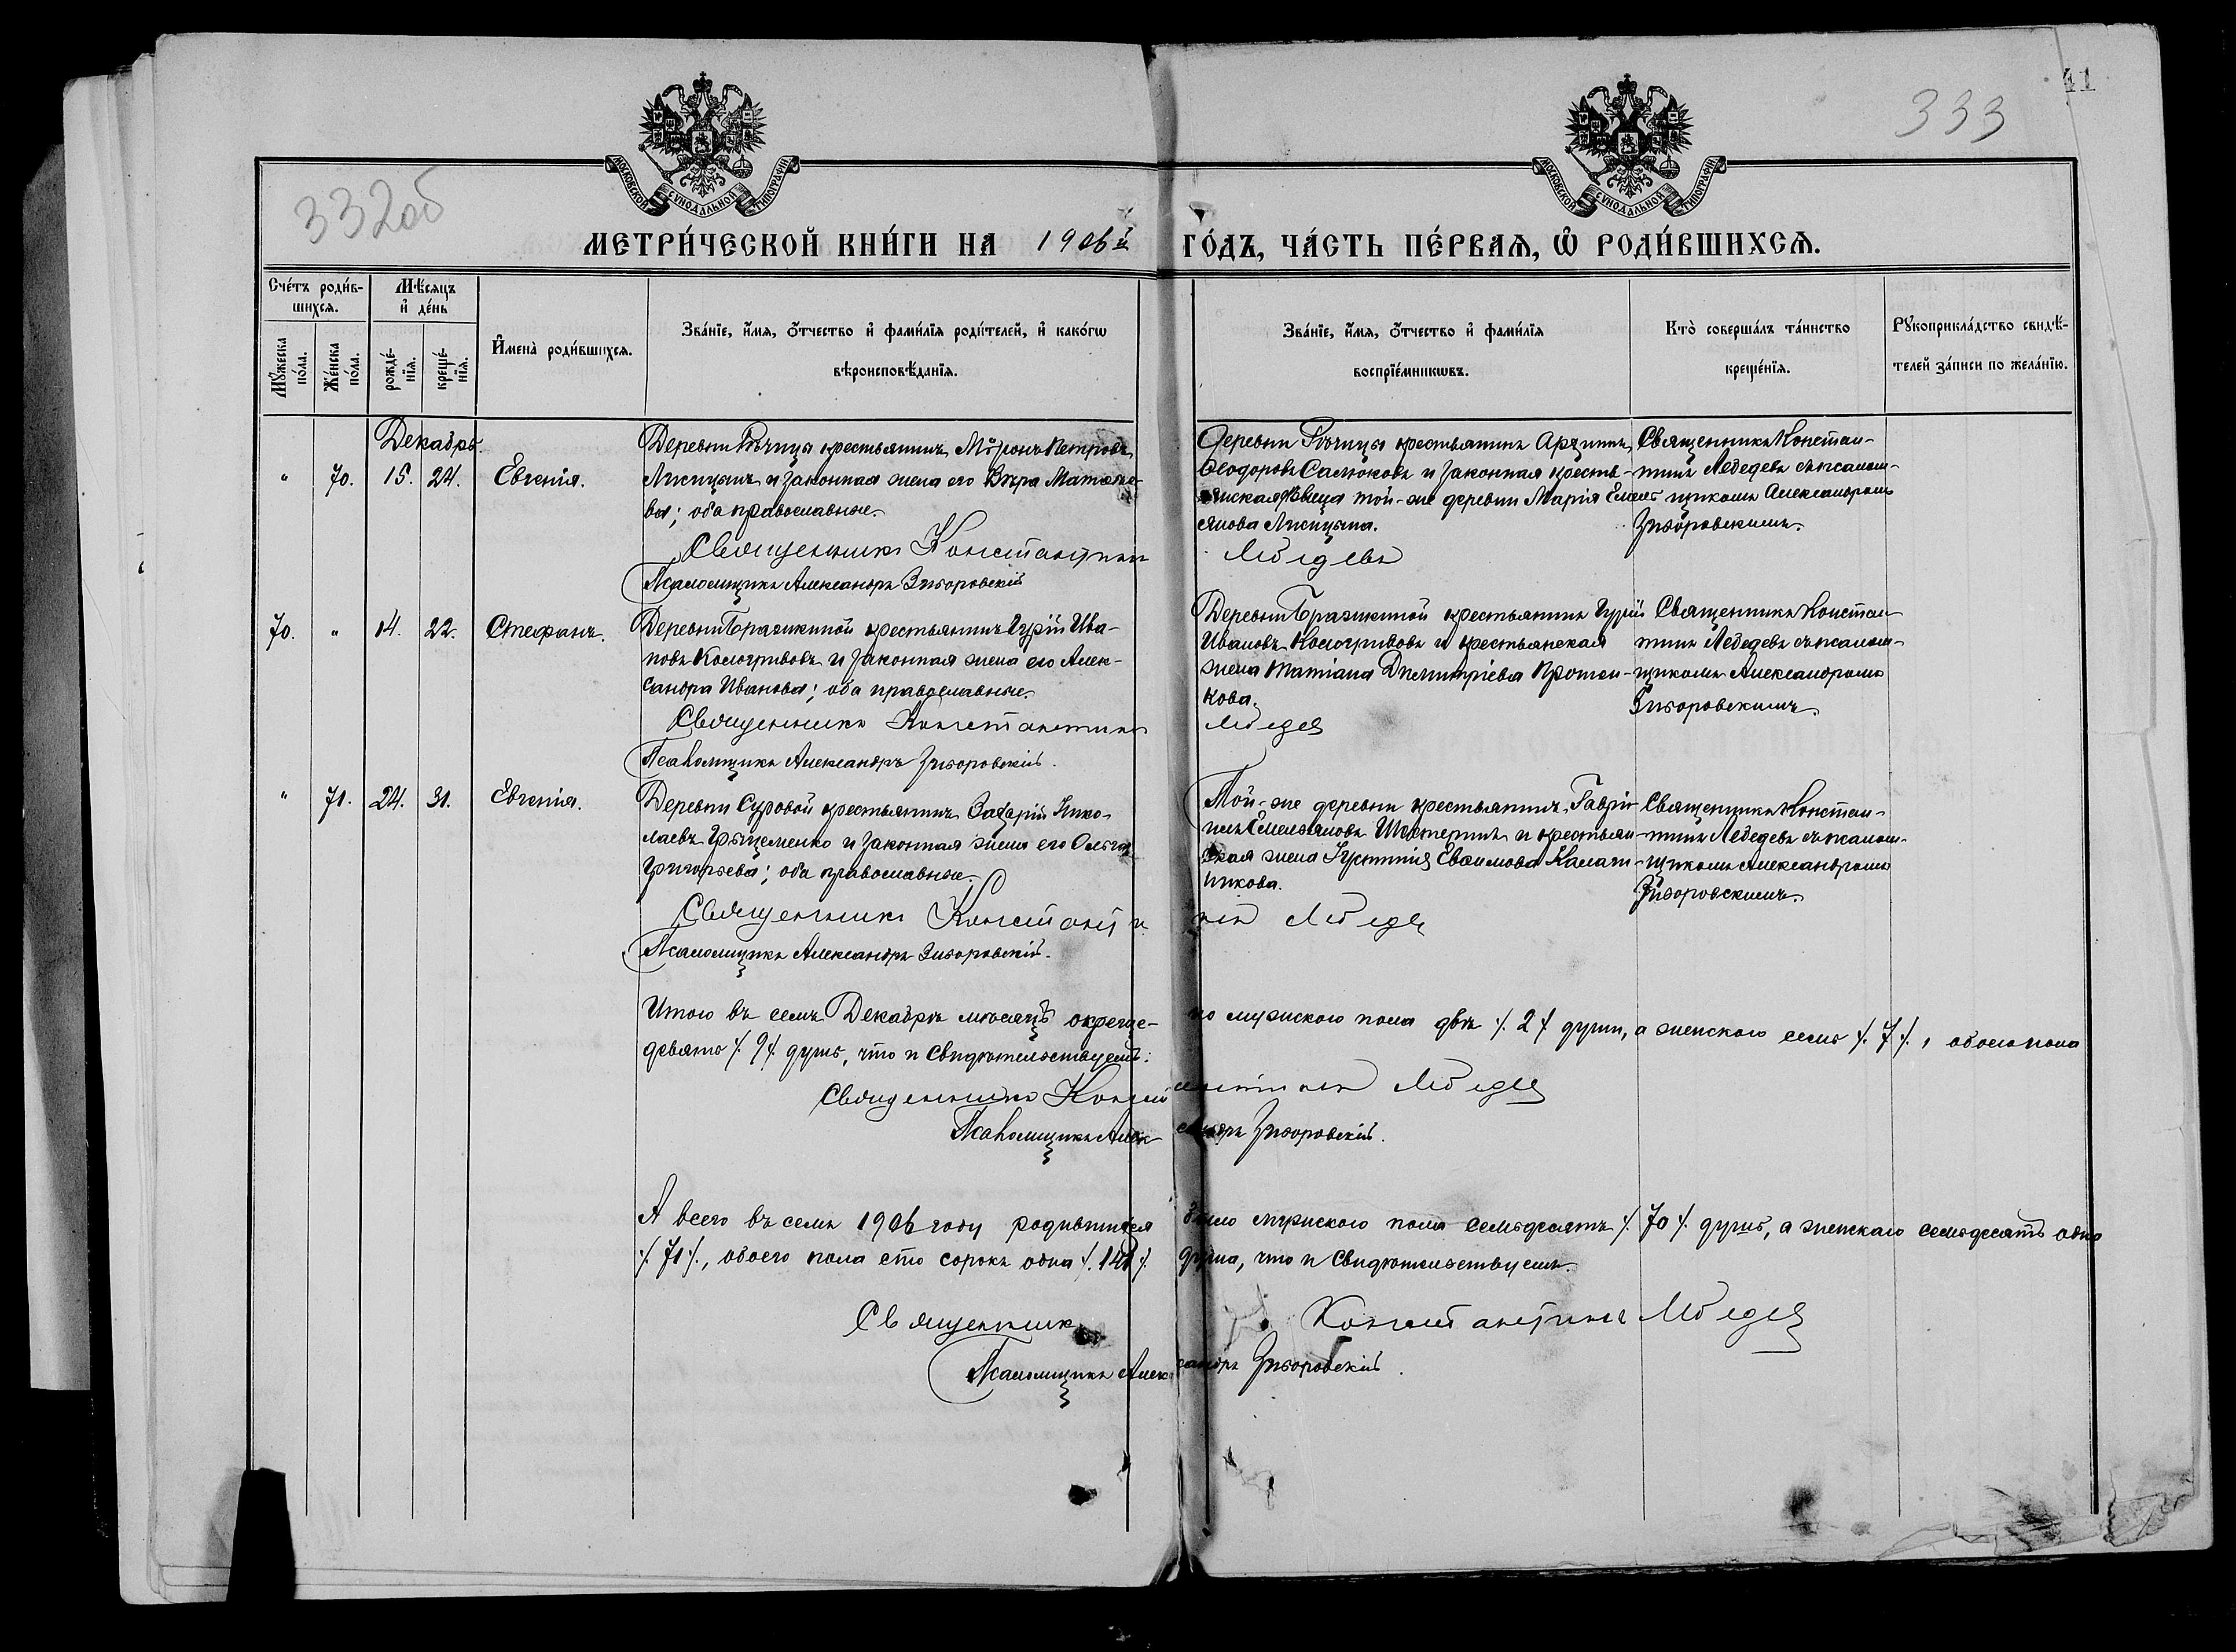 41
333
332об
МОСКОВСКОЙ СѴНОДАЛЬНОЙ ТИПОГРАФІИ
МОСКОВСКОЙ СѴНОДАЛЬНОЙ ТИПОГРАФІИ
МЕТРИ́ЧЕСКОЙ КНИ́ГИ НА 1906й ГО́ДЪ, ЧА́СТЬ ПЕ́РВАЯ, Ѡ҆ РОДИ́ВШИХСѦ.
Сче́тъ роди́в-
шихся.
Мѣ́сяцъ
и҆ де́нь
Мꙋ́жеска по́ла.
Же́нска по́ла.
рожде́-
нїя.
креще́-
нїя.
И҆мена̀ роди́вшихся.
Зва́нїе, и҆́мя, ѻ҆́тчество и҆ фами́лїя роди́телей, и҆ како́гѡ
вѣроисповѣ́данїя.
Зва́нїе, и҆́мя, ѻ҆́тчество и҆ фами́лїя
воспрїе́мникѡвъ.
Кто̀ соверша́лъ та́инство
креще́нїя.
Рꙋкоприкла́дство свидѣ́-
телей за́писи по жела́нїю.
Декабрь.
" 70. 15. 24. Евгенія.
Деревни Рѣчицы крестьянинъ Мѵронъ Петровъ
Лисицынъ и законная жена его Вѣра Матѳѣе-
ва; оба православные.
Священникъ Константинъ Лебедевъ
Псаломщикъ Александръ Зиворовскій
Деревни Рѣчицы крестьянинъ
Ѳеодоровъ и законная кресть-
янская дѣвица той-же деревни Марія Емель
янова Лисицына.
Священникъ Констан-
тинъ Лебедевъ съ псалом-
щикомъ Александромъ
Зиворовскимъ.
70. " 14. 22. Стефанъ.
Деревни Бражкиной крестьянинъ Гурій Ива-
новъ Кологривовъ и законная жена его Алек-
сандра Иванова; оба православные.
Священникъ Константинъ Лебедев
Псаломщикъ Александръ Зиворовскій.
Деревни Бражкиной крестьянинъ Гурій
Ивановъ Кологривовъ и крестьянская
жена Татіана Димитріева
кова.
Священникъ Констан-
тинъ Лебедевъ съ псалом-
щикомъ Александромъ
Зиворовскимъ.
" 71. 24. 31. Евгенія.
Деревни Суровой крестьянинъ Захарій Нико-
лаевъ Грященко и законная жена его Ольга
Григорьева; оба православные.
Священникъ Константинъ Лебедев
Псаломщикъ Александръ Зиворовскій.
Той-же деревни крестьянинъ Гаврі-
илъ Емельяновъ и крестьян-
ская жена Іустинія Евѳимова Калаш-
никова.
Священникъ Констан-
тинъ Лебедевъ съ псалом-
щикомъ Александромъ
Зиворовскимъ.
Итого въ семъ Декабрѣ мѣсяцѣ окреще-но мужского пола двѣ ⁒ 2 ⁒ души, а женского семь ⁒ 7 ⁒, обоего пола
девять ⁒ 9 ⁒ душъ, что и свидѣтельствуемъ:
Священникъ Константинъ Лебедев
Псаломщикъ Александръ Зиворовскій.
А всего въ семъ 1906 году родившихся было мужского пола семьдесятъ ⁒ 70 ⁒ душъ, а женскаго семьдесятъ одна
⁒ 71 ⁒, обоего пола сто сорокъ одна ⁒ 141 ⁒ душа, что и свидѣтельствуемъ.
Священникъ Константинъ Лебедев
Псаломщикъ Александръ Зиворовскій.